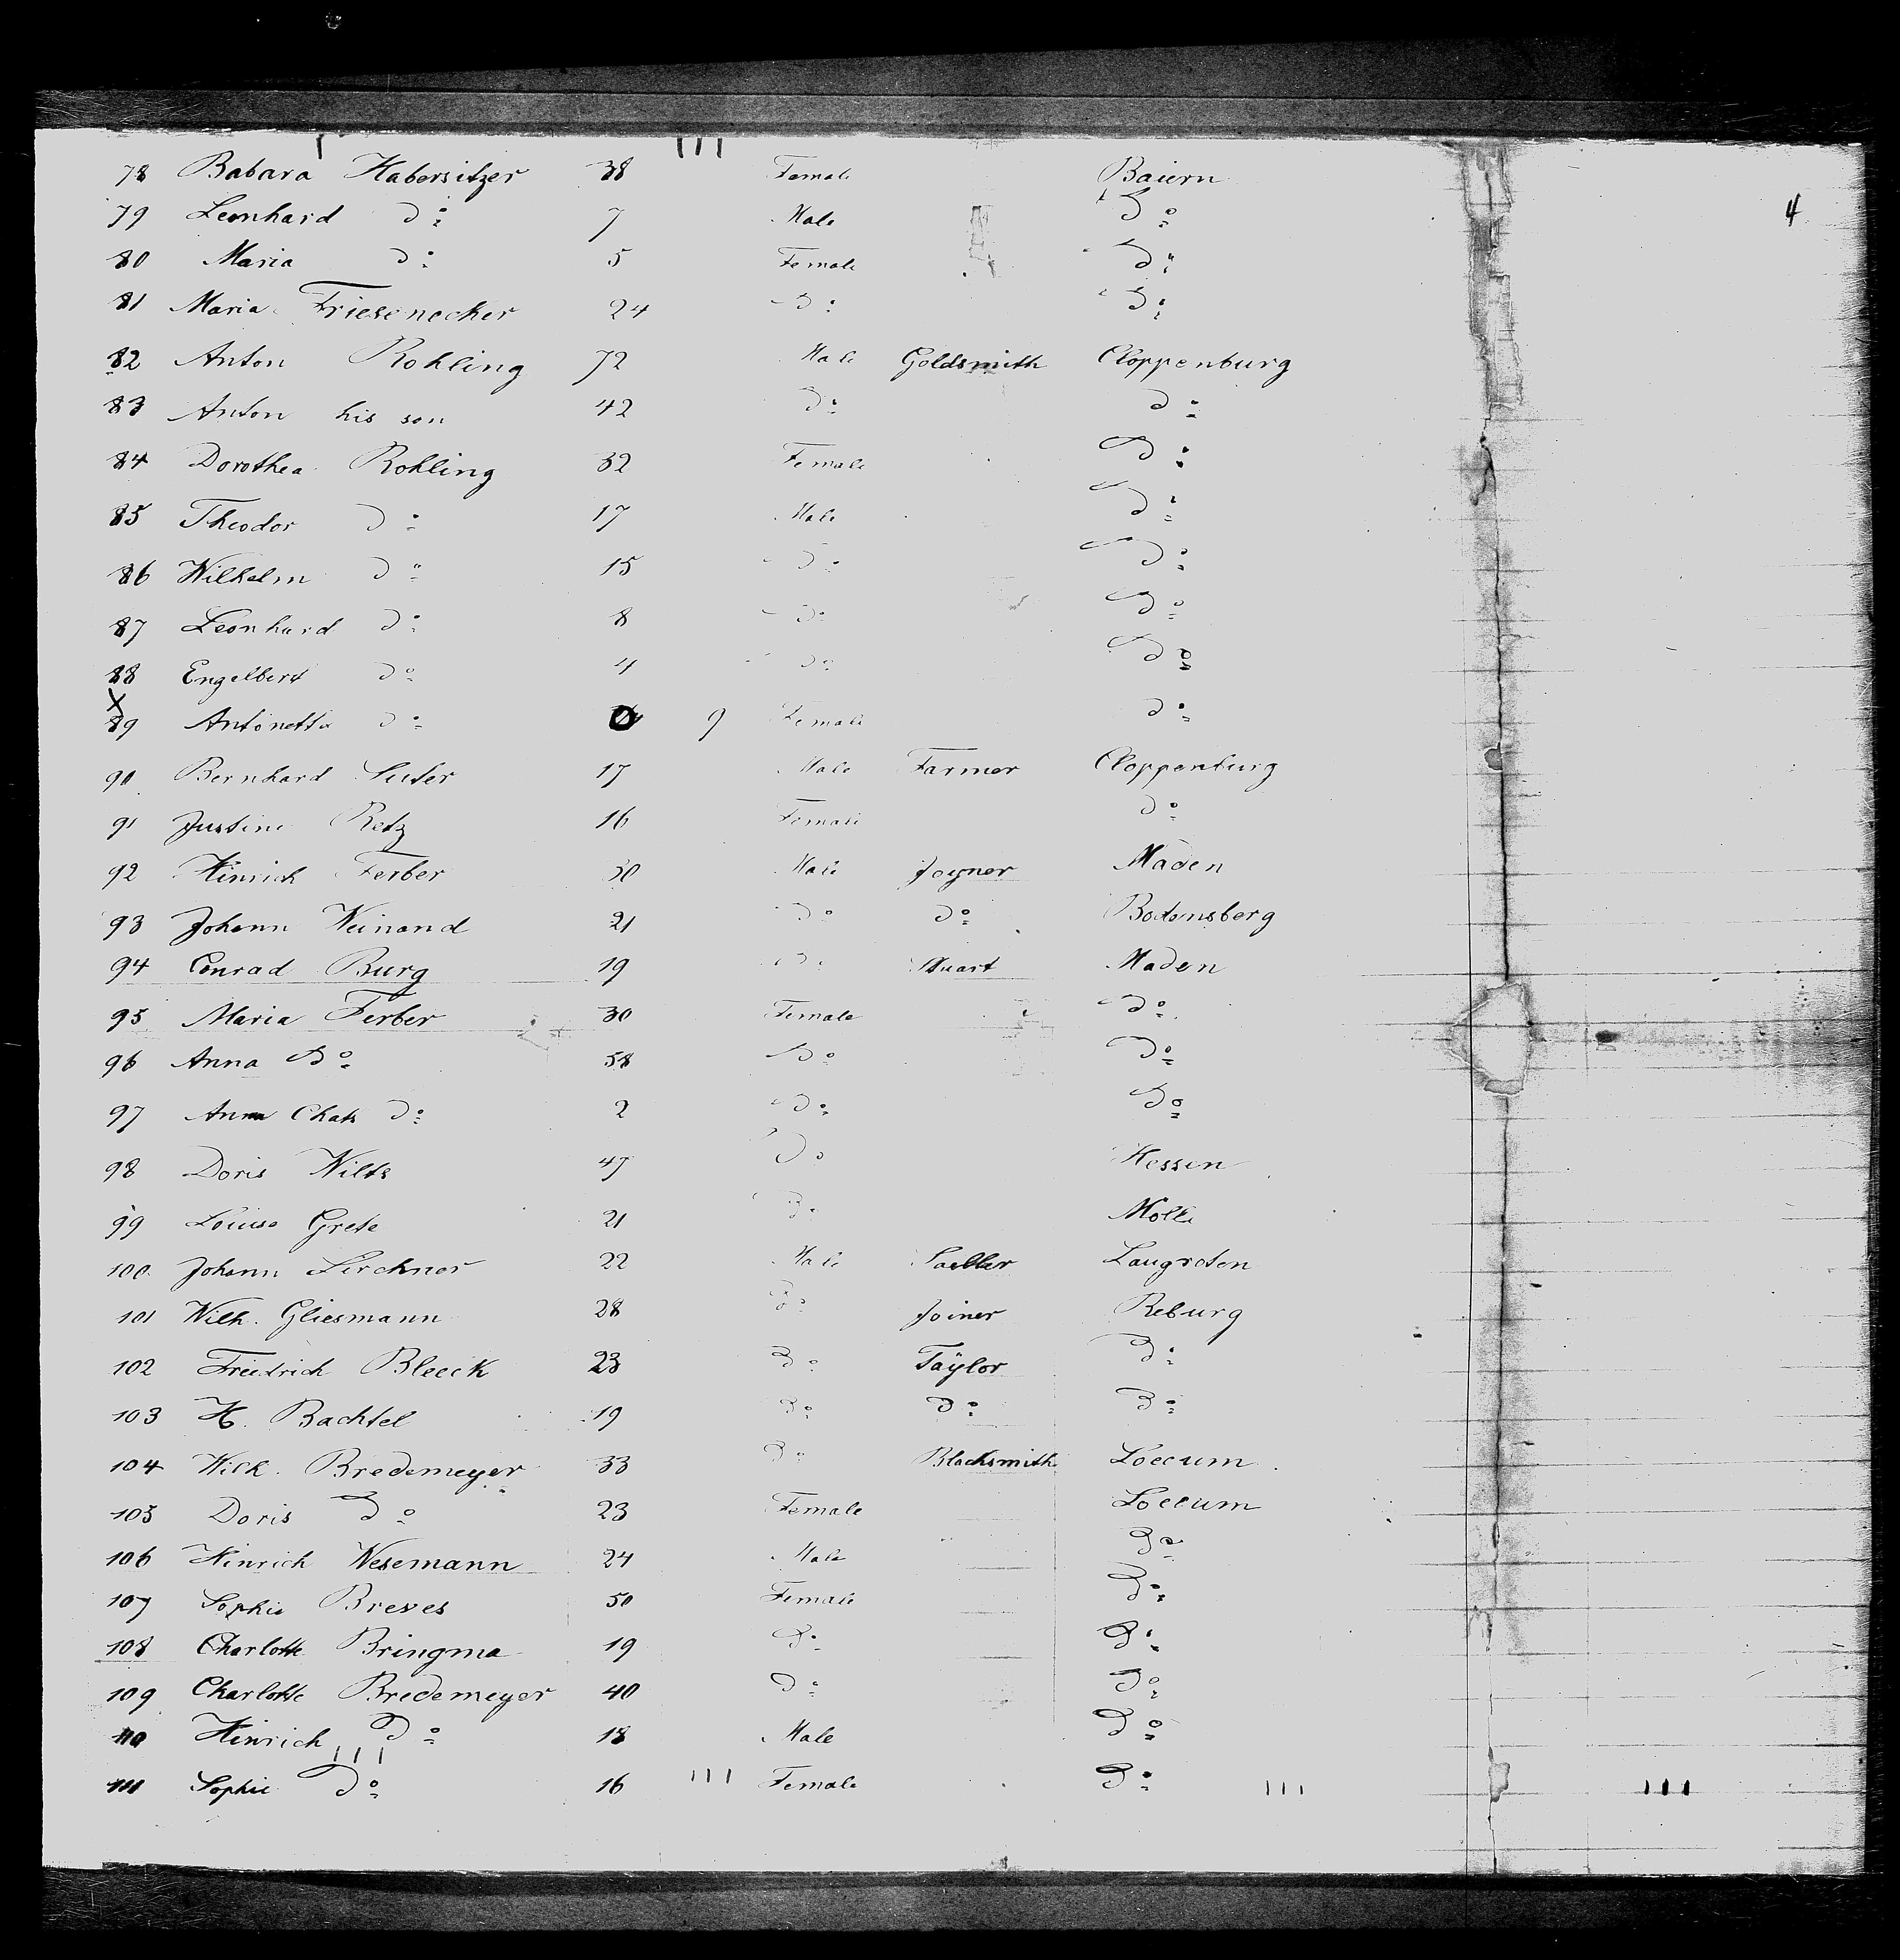 4
78 Babara Habersitzer 38 Female Baiern
79 Leonhard Do 7 Male Do
80 Maria Do 5 Female Do
81 Maria Friesenecker 24 Do Do
82 Anton Rohling 72 Male Goldsmith Cloppenburg
83 Anton his son 42 Do Do
84 Dorothea Rohling 32 Female Do
85 Theodor Do 17 Male Do
86 Wilhelm Do 15 Do Do
87 Leonhard Do 8 Do Do
88 Engelbert Do 4 Do Do
X
89 Antonetta Do 9 Female Do
90 Bernhard Suter 17 Male Farmer Cloppenburg
91 Justine Retz 16 Female Do
92 Hinrich Ferber 30 Male Joyner Maden
93 Johann Weinand 21 Do Do Bodensberg
94 Conrad Burg 19 Do Maden
95 Maria Ferber 30 Female Do
96 Anna Do 58 Do Do
97 Anna Do 2 Do Do
98 Doris Wilts 47 Do Hessen
99 Louise Grete 21 Do Molle
100 Johann Lerchner 22 Male Saeller Laugroten
101 Wilh. Gliesmann 28 Do Joiner Reburg
102 Friedrich Bleeck 23 Do Taÿlor Do
103 H. Bachtel 19 Do Do Do
104 Wilh. Bredemeyer 33 Do Blacksmith Loccum
105 Doris Do 23 Female Loccum
106 Hinrich Wesemann 24 Male Do
107 Sophie Breves 50 Female Do
108 Charlotte Bringma 19 Do Do
109 Charlotte Bredemeyer 40 Do Do
110 Hinrich Do 18 Male Do
111 Sophie Do 16 Female Do